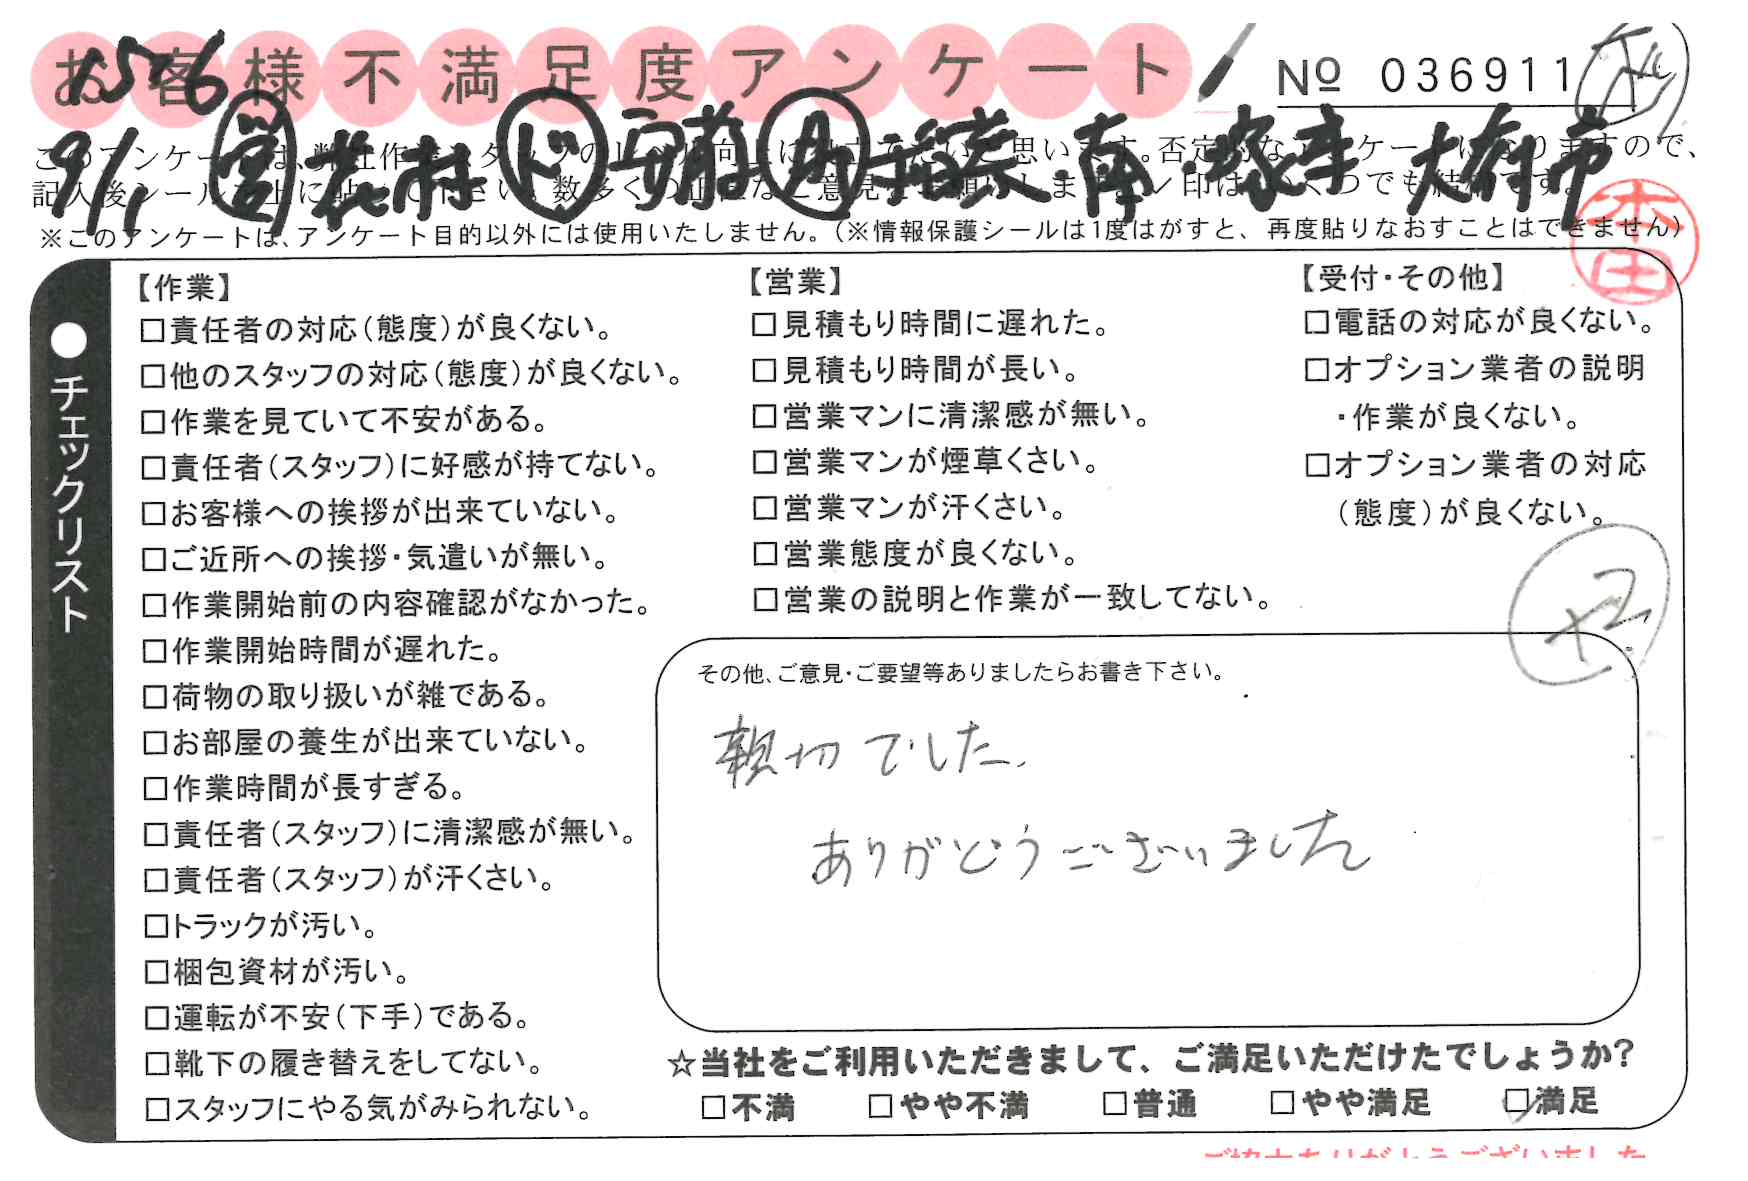 お客様不満足度アンケート
1576
Nº 036911
9/1 営 ド 安森 A 稲葉・南・家寺 大府市
※このアンケートは、アンケート目的以外には使用いたしません。(※情報保護シールは1度はがすと、再度貼りなおすことはできません)
本田
●チェックリスト
【作業】
□責任者の対応(態度)が良くない。
□他のスタッフの対応(態度)が良くない。
□作業を見ていて不安がある。
□責任者(スタッフ)に好感が持てない。
□お客様への挨拶が出来ていない。
□ご近所への挨拶・気遣いが無い。
□作業開始前の内容確認がなかった。
□作業開始時間が遅れた。
□荷物の取り扱いが雑である。
□お部屋の養生が出来ていない。
□作業時間が長すぎる。
□責任者(スタッフ)に清潔感が無い。
□責任者(スタッフ)が汗くさい。
□トラックが汚い。
□梱包資材が汚い。
□運転が不安(下手)である。
□靴下の履き替えをしてない。
□スタッフにやる気がみられない。
【営業】
□見積もり時間に遅れた。
□見積もり時間が長い。
□営業マンに清潔感が無い。
□営業マンが煙草くさい。
□営業マンが汗くさい。
□営業態度が良くない。
□営業の説明と作業が一致してない。
【受付・その他】
□電話の対応が良くない。
□オプション業者の説明
・作業が良くない。
□オプション業者の対応
(態度)が良くない。
その他、ご意見・ご要望等ありましたらお書き下さい。
親切でした。
ありがとうございました
☆当社をご利用いただきまして、ご満足いただけたでしょうか?
□不満 □やや不満 □普通 □やや満足 ☑満足
ご協力ありがとうございました